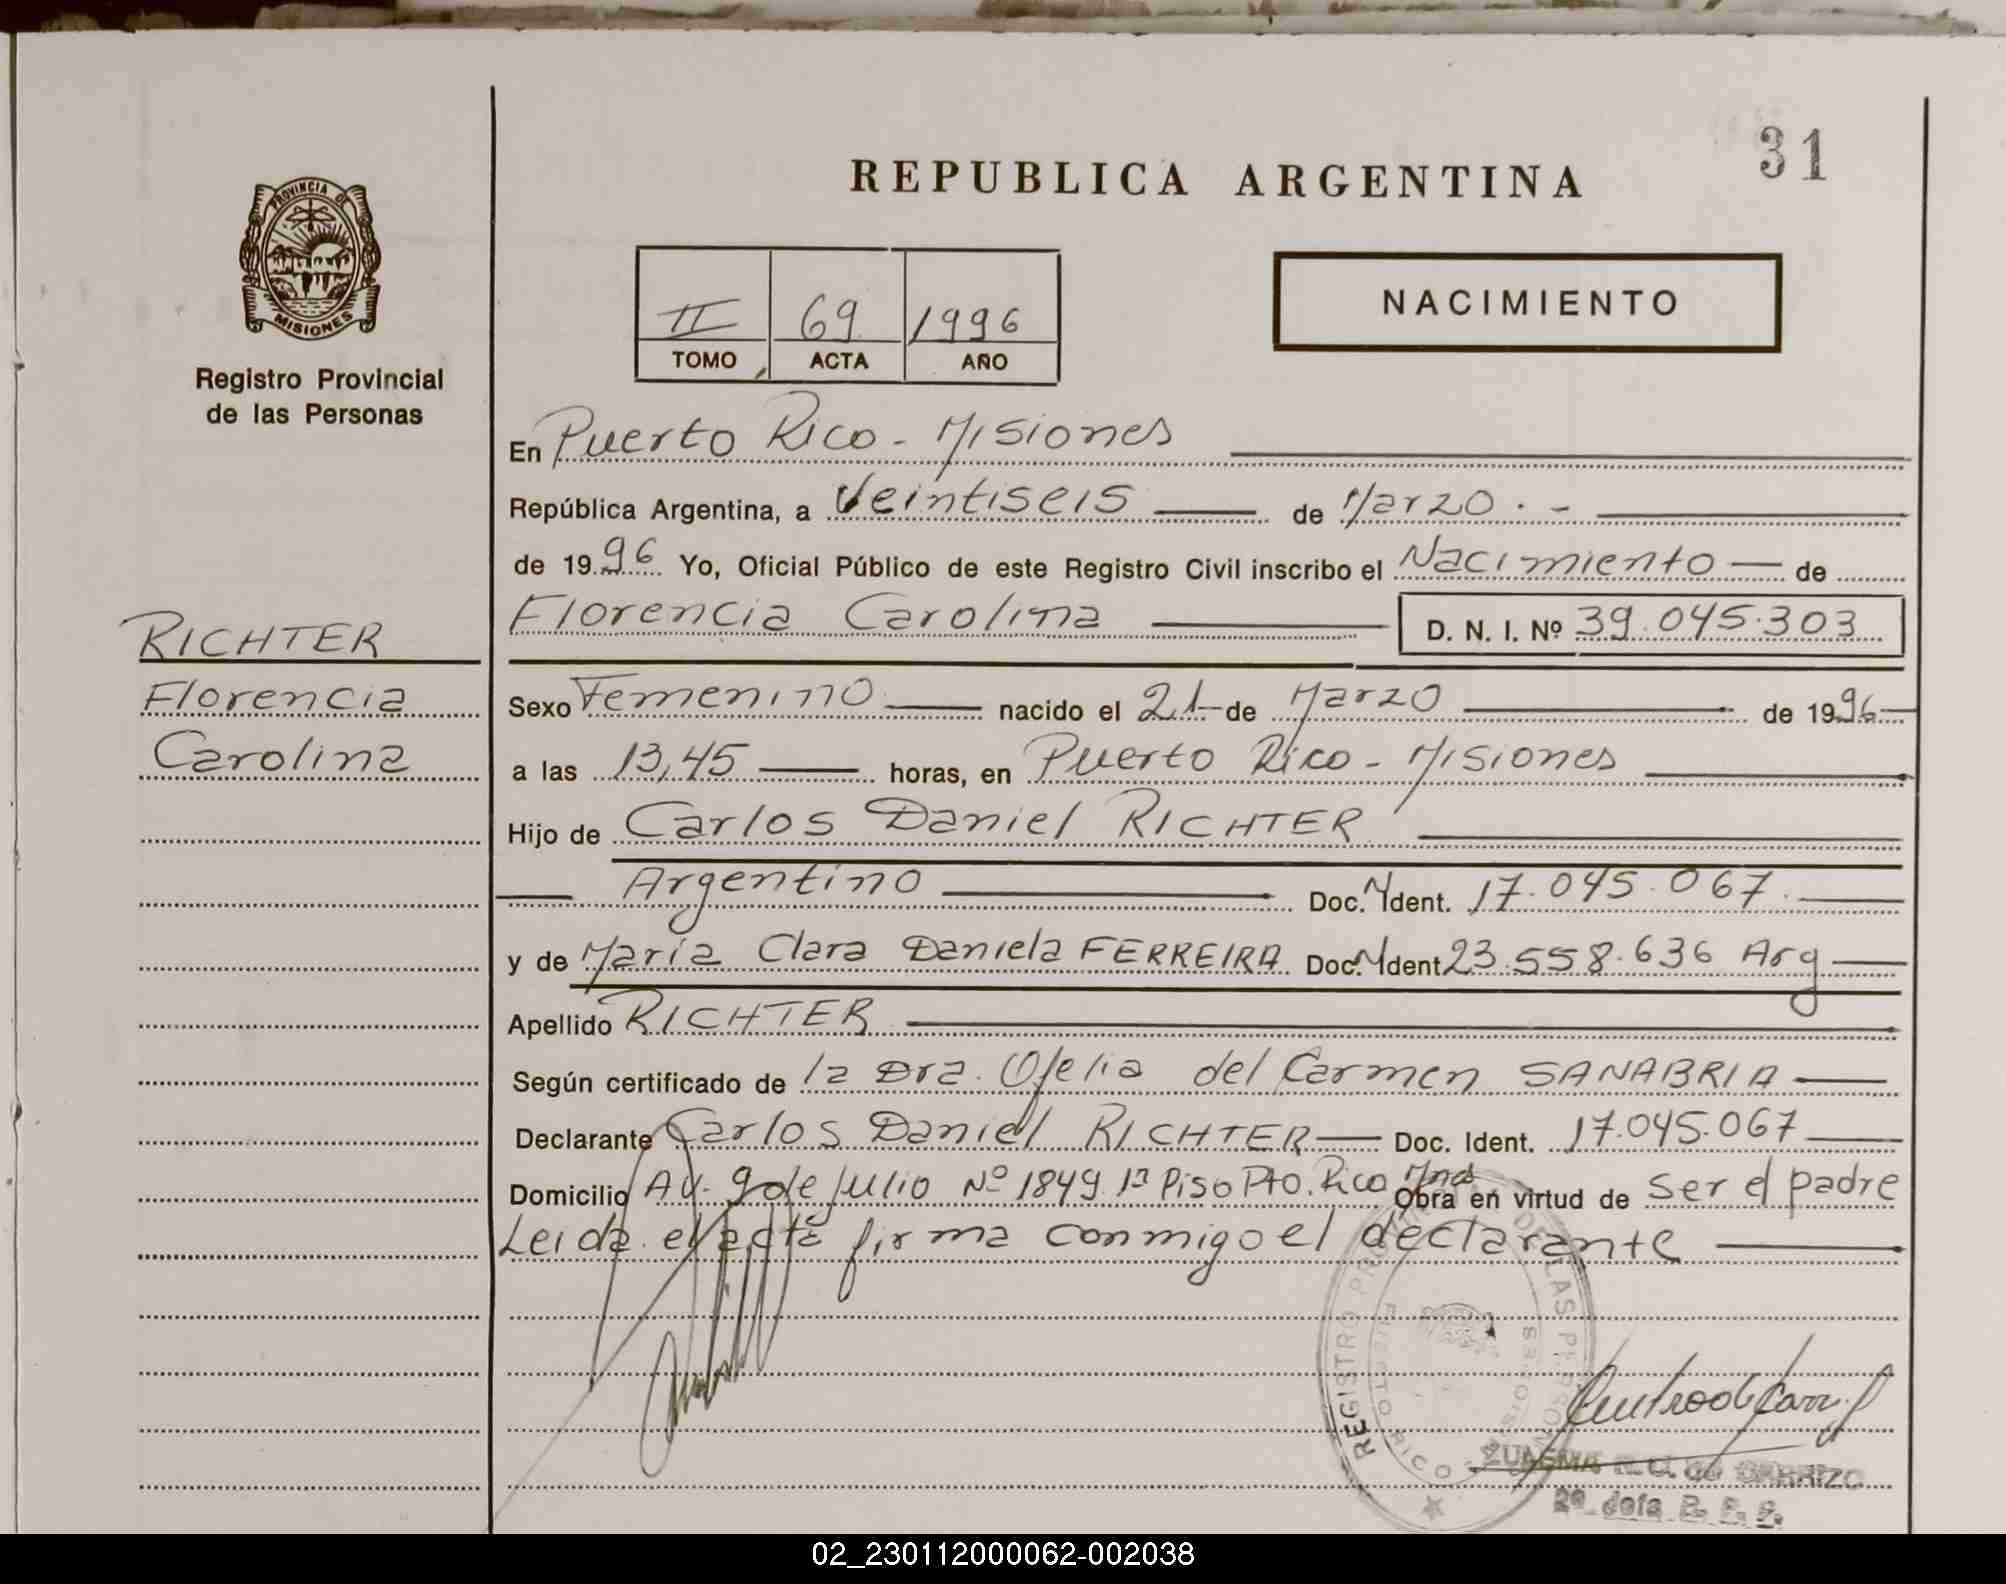 REPUBLICA ARGENTINA
31
PROVINCIA DE
MISIONES
Registro Provincial
de las Personas
II 69 1996
TOMO ACTA AÑO
NACIMIENTO
En Puerto Rico - Misiones
República Argentina, a Veintiseis de Marzo . -
de 1996 Yo, Oficial Público de este Registro Civil inscribo el Nacimiento de
Florencia Carolina D. N. I. Nº 39.045.303
RICHTER
Florencia
Carolina
Sexo Femenino nacido el 21 de Marzo de 1996
a las 13,45 horas, en Puerto Rico - Misiones
Hijo de Carlos Daniel RICHTER
Argentino Doc. Ident. 17.045.067.
y de María Clara Daniela FERREIRA Doc. Ident 23.558.636 Arg
Apellido RICHTER
Según certificado de la Dra. Ofelia del Carmen SANABRIA
Declarante Carlos Daniel RICHTER Doc. Ident. 17.045.067
Domicilio Av. 9 de Julio Nº 1849 1º Piso Pto. Rico Mnes Obra en virtud de ser el padre
Leida el acta firma conmigo el declarante
REGISTRO PROVINCIAL DE LAS PERSONAS
PUERTO RICO MISIONES
de CARRIZO
02_230112000062-002038